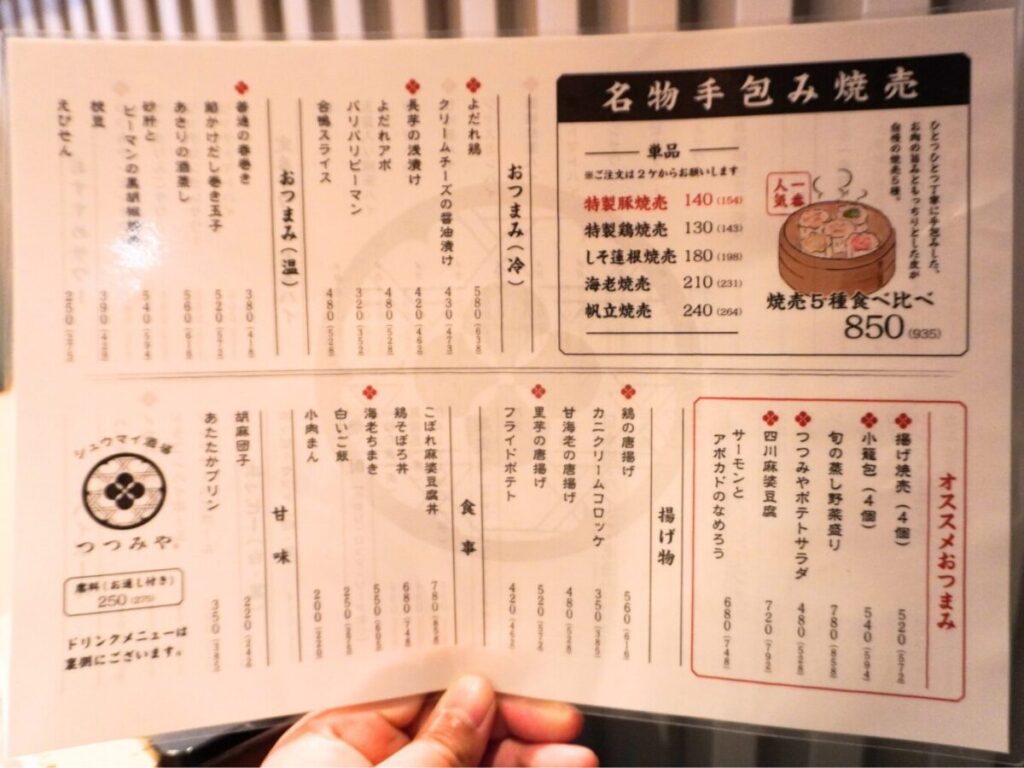 名物手包み焼売
ひとつひとつ丁寧に手包みした、
お肉の旨みともっちりとした皮が
自慢の焼売5種。
一番
人気
単品
※ご注文は2ケからお願いします
特製豚焼売 140 (154)
特製鶏焼売 130 (143)
しそ蓮根焼売 180 (198)
海老焼売 210 (231)
帆立焼売 240 (264)
焼売5種食べ比べ
850 (935)
おつまみ(冷)
よだれ鶏 580 (638)
クリームチーズの醤油漬け 430 (473)
長芋の浅漬け 420 (462)
よだれアボ 480 (528)
パリパリピーマン 320 (352)
合鴨スライス 480 (528)
おつまみ(温)
普通の春巻き 380 (418)
餡かけだし巻き玉子 520 (572)
あさりの酒蒸し 560 (616)
砂肝と
ピーマンの黒胡椒炒め 540 (594)
枝豆 390 (429)
えびせん 250 (275)
オススメおつまみ
揚げ焼売(4個) 520 (572)
小籠包(4個) 540 (594)
旬の蒸し野菜盛り 780 (858)
つつみやポテトサラダ 480 (528)
四川麻婆豆腐 720 (792)
サーモンと
アボカドのなめろう 680 (748)
揚げ物
鶏の唐揚げ 560 (616)
カニクリームコロッケ 350 (385)
甘海老の唐揚げ 480 (528)
里芋の唐揚げ 520 (572)
フライドポテト 420 (462)
食事
こぼれ麻婆豆腐丼 780 (858)
鶏そぼろ丼 680 (748)
海老ちまき 550 (605)
白いご飯 250 (275)
小肉まん 200 (220)
甘味
胡麻団子 220 (242)
あたたかプリン 350 (385)
シュウマイ酒場
つつみや
席料(お通し付き)
250 (275)
ドリンクメニューは
裏側にございます。